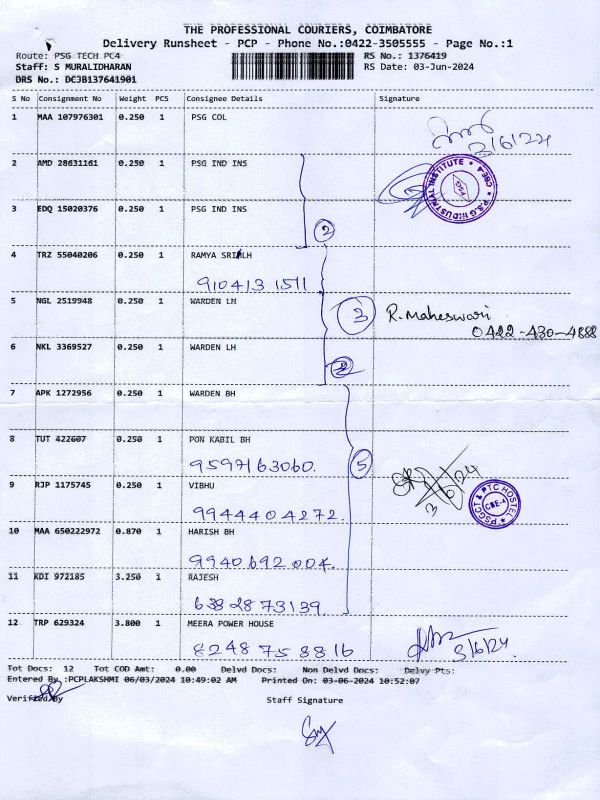 THE PROFESSIONAL COURIERS, COIMBATORE
Delivery Runsheet - PCP - Phone No.:0422-3505555 - Page No.:1
Route: PSG TECH PC4 RS No.: 1376419
Staff: S MURALIDHARAN RS Date: 03-Jun-2024
DRS No.: DCJB137641901
S No Consignment No Weight PCS Consignee Details Signature
1 MAA 107976301 0.250 1 PSG COL
3/6/24
2 AMD 28631161 0.250 1 PSG IND INS
P.S.G INDUSTRIAL INSTITUTE * CBE-4 *
3 EDQ 15020376 0.250 1 PSG IND INS
2
4 TRZ 55040206 0.250 1 RAMYA SRI LH
910413 1511
5 NGL 2519948 0.250 1 WARDEN LH
3 R. Maheswari
0422-430-4888
6 NKL 3369527 0.250 1 WARDEN LH
7 APK 1272956 0.250 1 WARDEN BH
8 TUT 422607 0.250 1 PON KABIL BH
9597163060.
5
9 RJP 1175745 0.250 1 VIBHU
3/6/24
9944404272.
PSGCT & PTC HOSTEL CBE-4
10 MAA 650222972 0.870 1 HARISH BH
9940692004.
11 KDI 972185 3.250 1 RAJESH
6382873139.
12 TRP 629324 3.800 1 MEERA POWER HOUSE
8248758816
3/6/24.
Tot Docs: 12 Tot COD Amt: 0.00 Delvd Docs: Non Delvd Docs: Delvy Pts:
Entered By :PCPLAKSHMI 06/03/2024 10:49:02 AM Printed On: 03-06-2024 10:52:07
Verified By Staff Signature